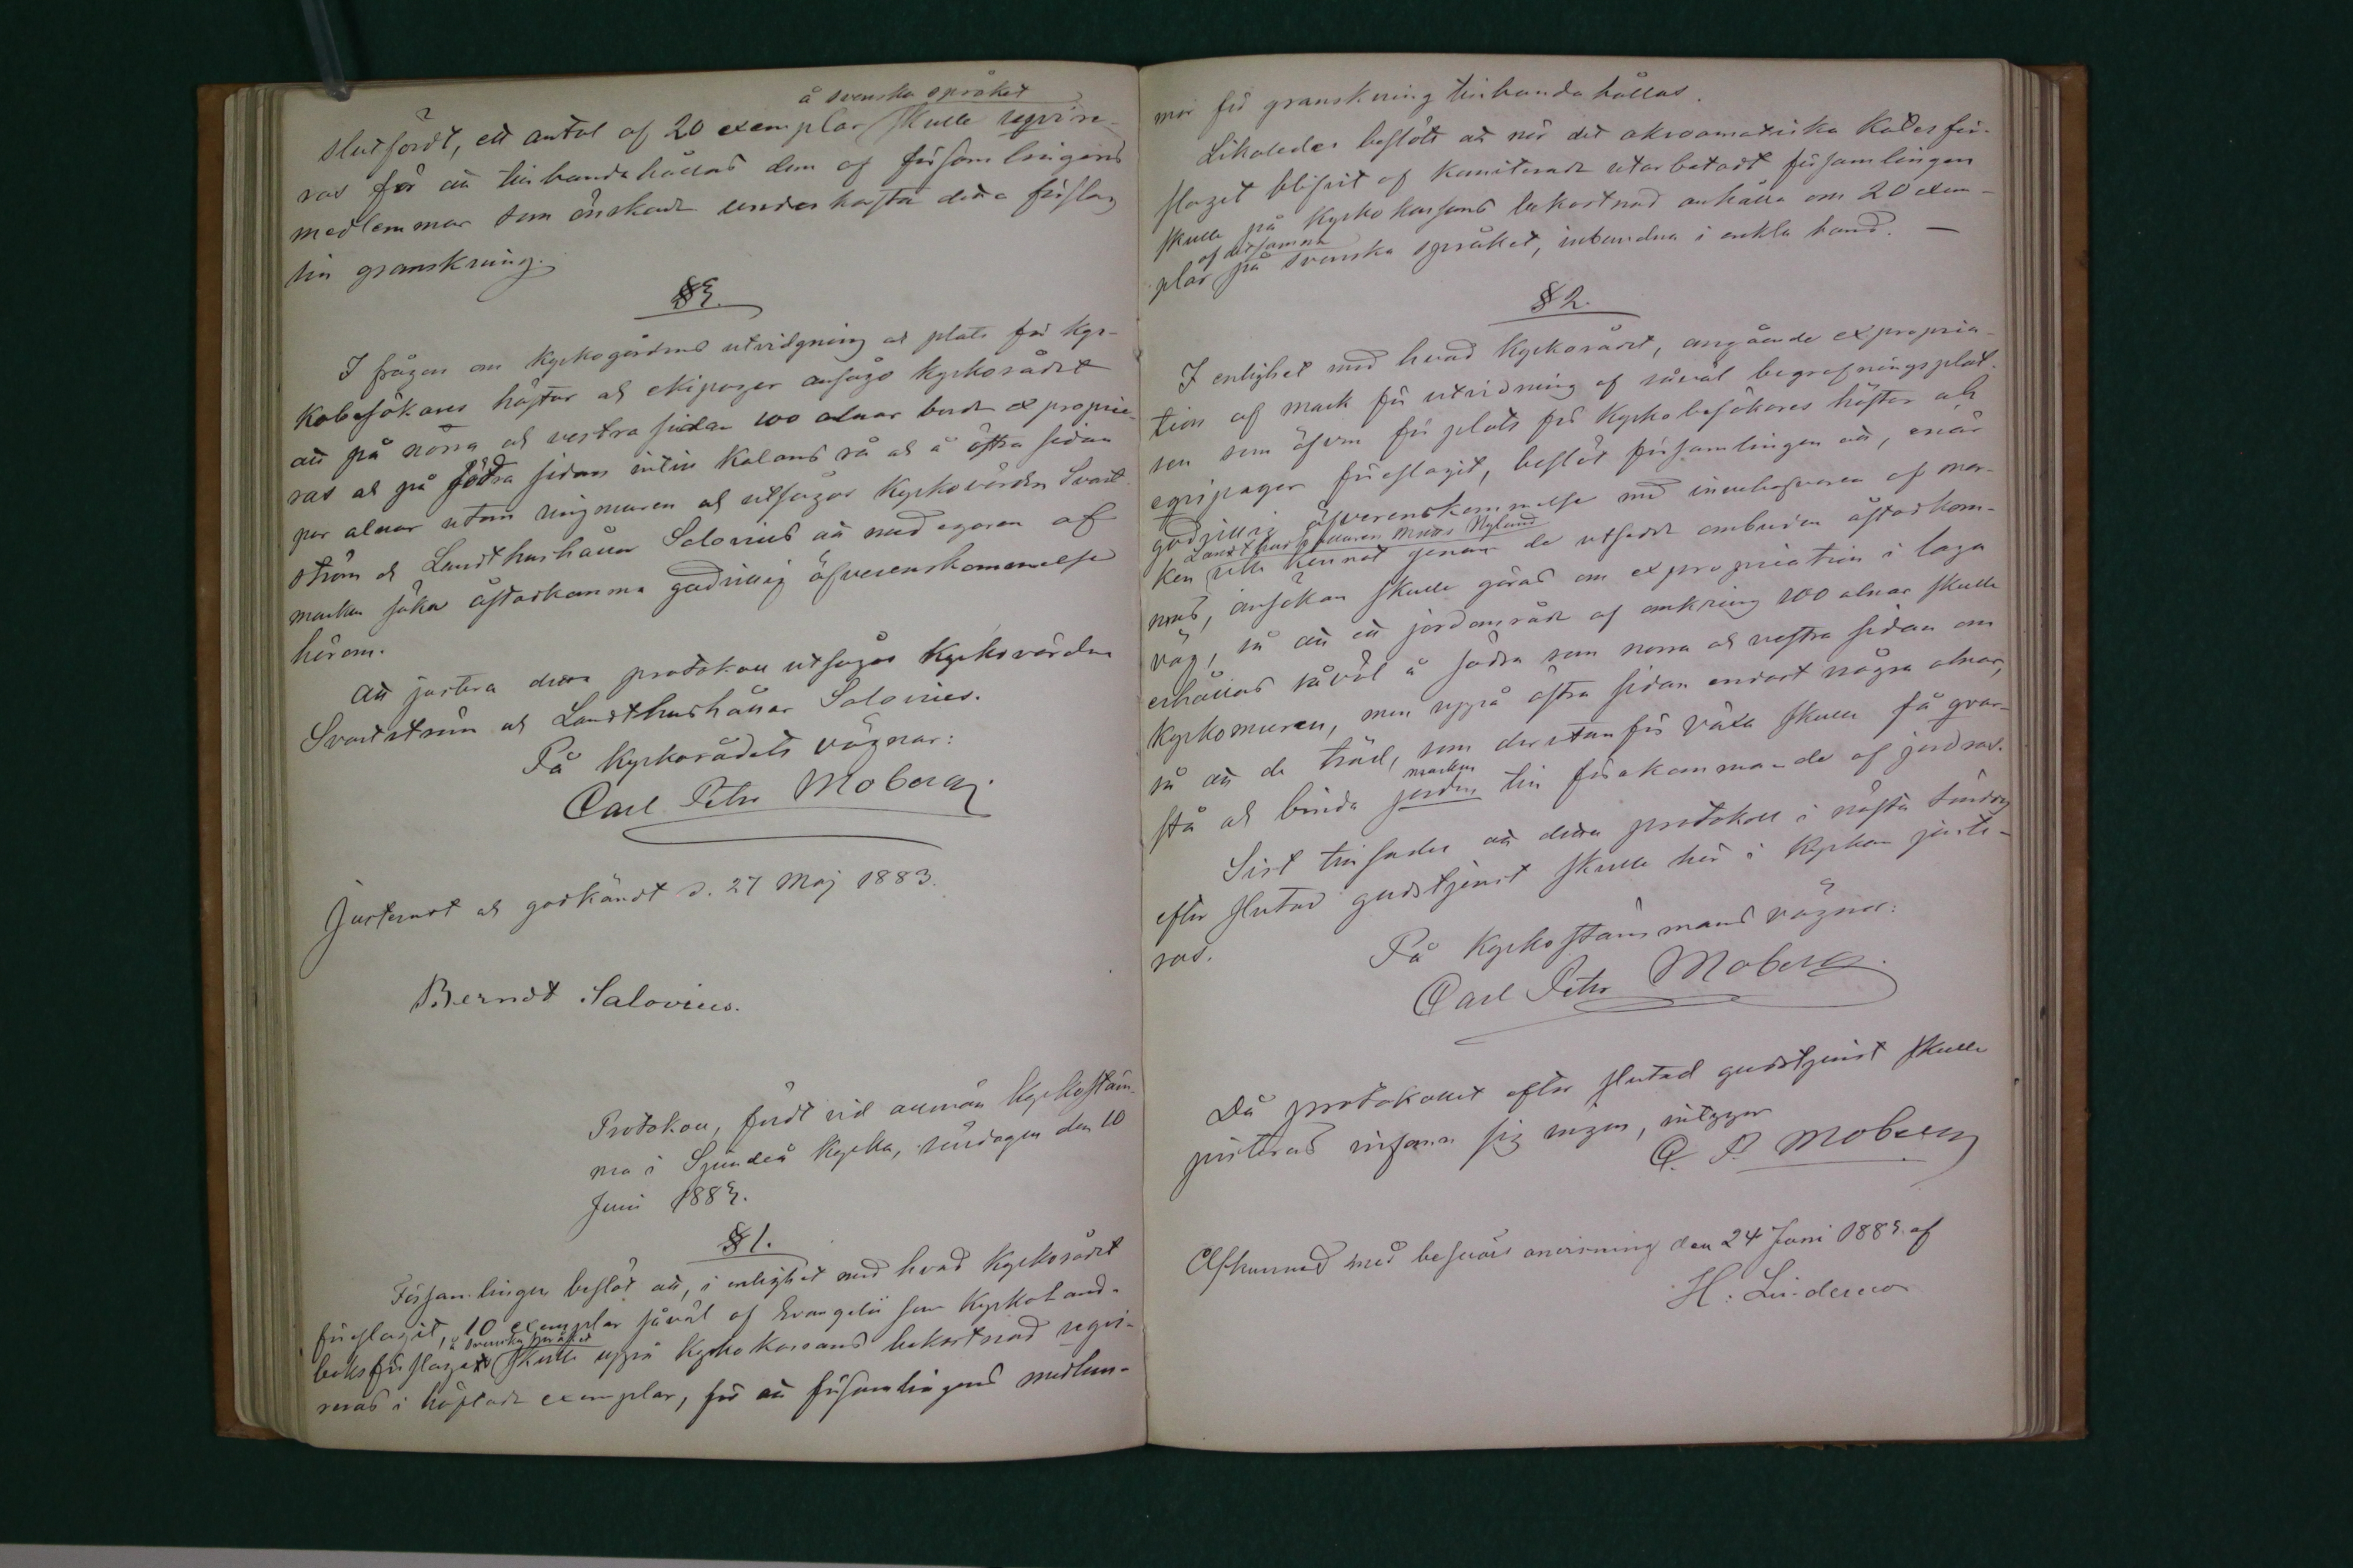 å svenska språket
slutfördt, ett antal af 20 exemplar skulle reqvire-
ras för att tillhandahållas dem af församlingens
medlemmar som önskade underkasta detta förslag
till granskning.
§ 3.
I frågan om Kyrkogårdens utvidgning och plats för Kyr-
kobesökares hästar och ekipager ansågo Kyrkorådet
att på norra och vestra sidan 100 alnar borde exproprie-
ras och på södra sidan intill Kalans rå och å östra sidan
par alnar utom ringmuren och utsågos Kyrkovärden Svart-
ström och Landthushållar Salovius att med egaren af
marken söka åstadkomma godvillig öfverenskommelse
härom.
Att justera detta protokoll utsågos Kyrkovärden
Svartström och Landthushållar Salovius.
På Kyrkorådets vägnar:
Carl Petr Moberg.
Justerat och godkändt d. 27 Maj 1883.
Berndt Salovius.
Protokoll, fördt vid allmän Kyrkostäm-
ma i Sjundeå Kyrka, söndagen den 10
Juni 1883.
§ 1.
Församlingen beslöt att, i enlighet med hvad Kyrkorådet
föreslagit, 10 exemplar såväl af Evangelii som Kyrkohand-
å svenska språket
boksförslaget skulle uppå Kyrkokassans bekostnad reqvi-
reras i häftade exemplar, för att församlingens medlem-
mar för granskning tillhandahållas.
Likaledes beslöts att när det akroamatiska Katesför-
slaget blifvit af Komiterade utarbetadt församlingen
skulle på Kyrkokassans bekostnad anhålla om 20 exem-
af detsamma
plar på svenska språket, inbundna i enkla band. —
§ 2.
I enlighet med hvad Kyrkorådet, angående expropria-
tion af mark för utvidning af såväl begrafningsplat-
sen som äfven för plats för Kyrkobesökares hästar och
eqvipager föreslagit, beslöt församlingen att, enär
godvillig öfverenskommelse med innehafvaren af mar-
Landthushållaren Nylund
ken icke kunnat genom de utsedde ombuden åstadkom-
mas, ansökan skulle göras om expropriation i laga
väg, så att ett jordområde af omkring 100 alnar skulle
erhållas såväl å södra som norra och vestra sidan om
Kyrkomuren, men uppå östra sidan endast några alnar,
så att de träd, som derutanför växa skulle få qvar-
marken
stå och binda jorden till förekommande af jordras.
Sist tillsades att detta protokoll i nästa söndag
efter slutad gudstjenst skulle här i Kyrkan juste-
ras.
På Kyrkostämmans vägnar:
Carl Petr Moberg.
Då protokollet efter slutad gudstjenst skulle
justeras infann sig ingen, intygar
C. P. Moberg
Afkunnad med besvärs anvisning den 24 Juni 1883 af